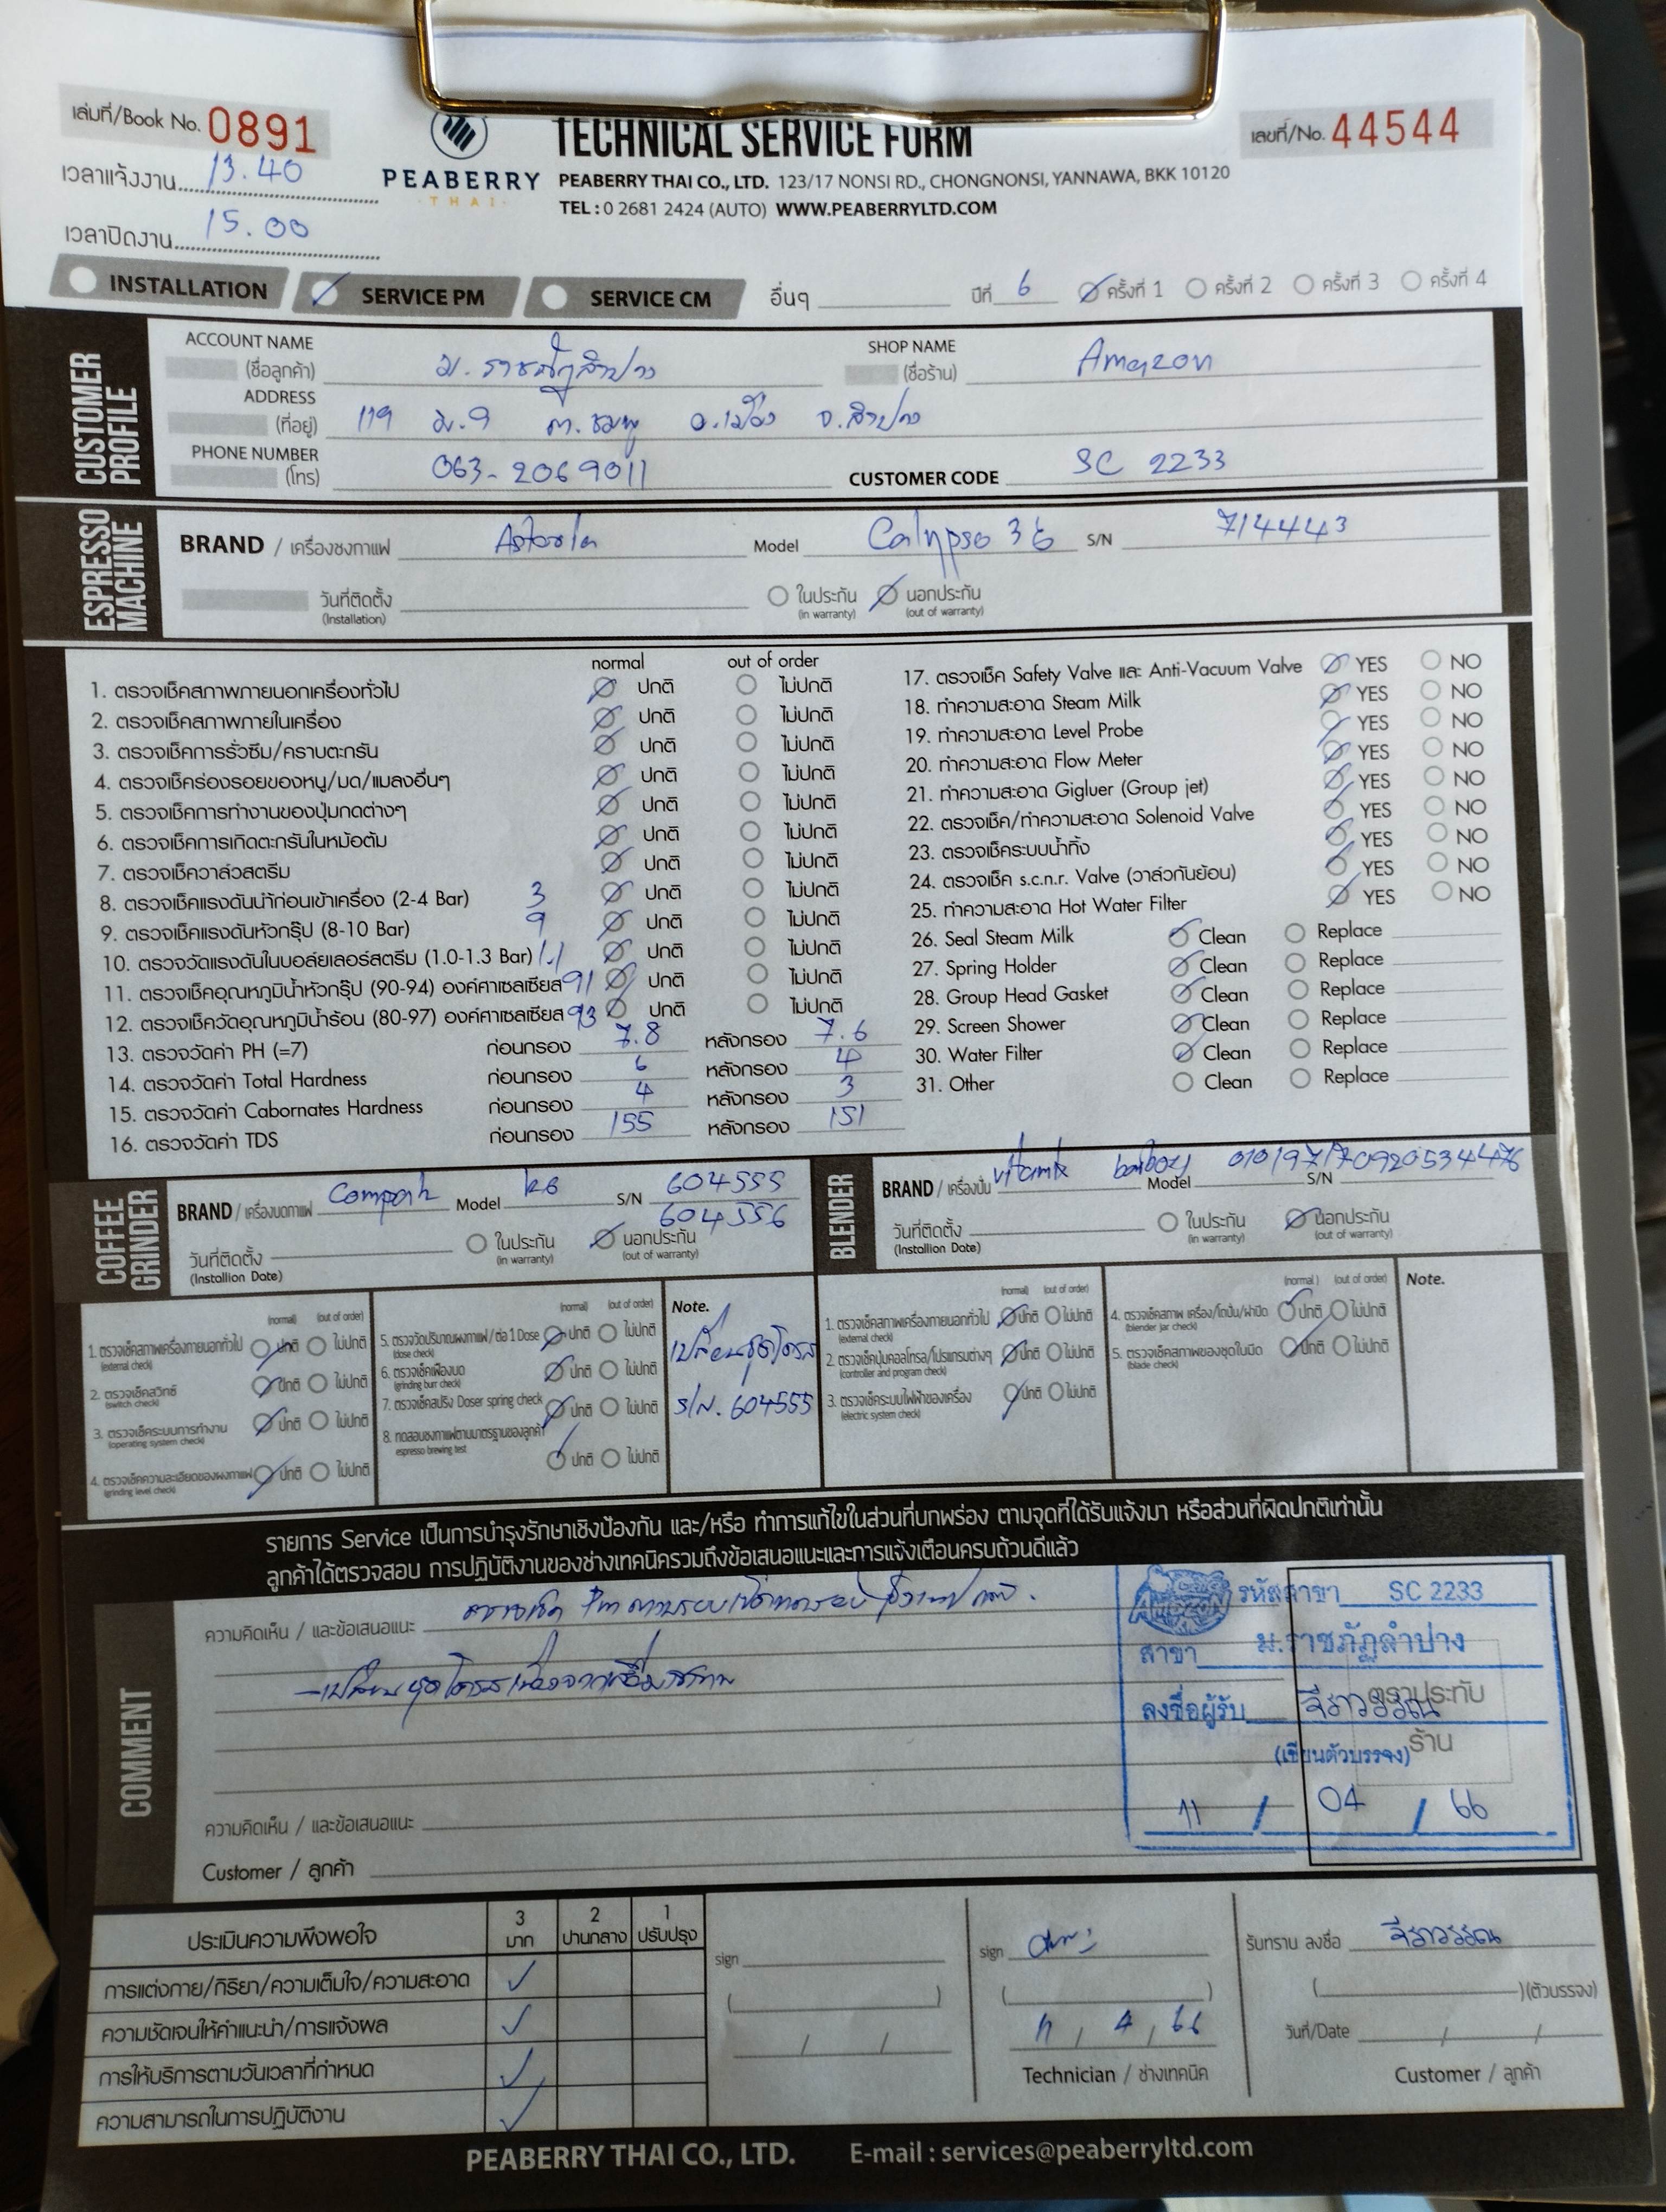 เล่มที่/Book No. 0891
เวลาแจ้งงาน 13.40
เวลาปิดงาน 15.00
PEABERRY
THAI
TECHNICAL SERVICE FORM
PEABERRY THAI CO., LTD. 123/17 NONSI RD., CHONGNONSI, YANNAWA, BKK 10120
TEL : 0 2681 2424 (AUTO) WWW.PEABERRYLTD.COM
เลขที่/No. 44544
INSTALLATION SERVICE PM SERVICE CM อื่นๆ ปีที่ 6 ครั้งที่ 1 ครั้งที่ 2 ครั้งที่ 3 ครั้งที่ 4
CUSTOMER PROFILE
ACCOUNT NAME (ชื่อลูกค้า) ม. ราชภัฏลำปาง SHOP NAME (ชื่อร้าน) Amazon
ADDRESS (ที่อยู่) 119 ม.9 ต. ชมพู อ.เมือง จ.ลำปาง
PHONE NUMBER (โทร) 063-2069011 CUSTOMER CODE SC 2233
ESPRESSO MACHINE
BRAND / เครื่องชงกาแฟ Model Calypso S/N 714443
วันที่ติดตั้ง (Installation) ในประกัน (in warranty) นอกประกัน (out of warranty)
normal out of order
1. ตรวจเช็คสภาพภายนอกเครื่องทั่วไป ปกติ ไม่ปกติ
2. ตรวจเช็คสภาพภายในเครื่อง ปกติ ไม่ปกติ
3. ตรวจเช็คการรั่วซึม/คราบตะกรัน ปกติ ไม่ปกติ
4. ตรวจเช็คร่องรอยของหนู/มด/แมลงอื่นๆ ปกติ ไม่ปกติ
5. ตรวจเช็คการทำงานของปุ่มกดต่างๆ ปกติ ไม่ปกติ
6. ตรวจเช็คการเกิดตะกรันในหม้อต้ม ปกติ ไม่ปกติ
7. ตรวจเช็ควาล์วสตรีม ปกติ ไม่ปกติ
8. ตรวจเช็คแรงดันน้ำก่อนเข้าเครื่อง (2-4 Bar) 3 ปกติ ไม่ปกติ
9. ตรวจเช็คแรงดันหัวกรุ๊ป (8-10 Bar) 9 ปกติ ไม่ปกติ
10. ตรวจวัดแรงดันในบอล์ยเลอร์สตรีม (1.0-1.3 Bar) 1.1 ปกติ ไม่ปกติ
11. ตรวจเช็คอุณหภูมิน้ำหัวกรุ๊ป (90-94) องค์ศาเซลเซียส 91 ปกติ ไม่ปกติ
12. ตรวจเช็ควัดอุณหภูมิน้ำร้อน (80-97) องค์ศาเซลเซียส 93 ปกติ ไม่ปกติ
13. ตรวจวัดค่า PH (=7) ก่อนกรอง 7.8 หลังกรอง 7.6
14. ตรวจวัดค่า Total Hardness ก่อนกรอง 6 หลังกรอง 4
15. ตรวจวัดค่า Cabornates Hardness ก่อนกรอง 4 หลังกรอง 3
16. ตรวจวัดค่า TDS ก่อนกรอง 155 หลังกรอง 151
17. ตรวจเช็ค Safety Valve และ Anti-Vacuum Valve YES NO
18. ทำความสะอาด Steam Milk YES NO
19. ทำความสะอาด Level Probe YES NO
20. ทำความสะอาด Flow Meter YES NO
21. ทำความสะอาด Gigluer (Group jet) YES NO
22. ตรวจเช็ค/ทำความสะอาด Solenoid Valve YES NO
23. ตรวจเช็คระบบน้ำทิ้ง YES NO
24. ตรวจเช็ค s.c.n.r. Valve (วาล์วกันย้อน) YES NO
25. ทำความสะอาด Hot Water Filter YES NO
26. Seal Steam Milk Clean Replace
27. Spring Holder Clean Replace
28. Group Head Gasket Clean Replace
29. Screen Shower Clean Replace
30. Water Filter Clean Replace
31. Other Clean Replace
COFFEE GRINDER
BRAND / เครื่องบดกาแฟ Model K6 S/N 604555
604556
วันที่ติดตั้ง (Installion Date) ในประกัน (in warranty) นอกประกัน (out of warranty)
BLENDER
BRAND / เครื่องปั่น Model S/N
วันที่ติดตั้ง (Installion Date) ในประกัน (in warranty) นอกประกัน (out of warranty)
(normal) (out of order)
1. ตรวจเช็คสภาพเครื่องภายนอกทั่วไป (external check) ปกติ ไม่ปกติ
2. ตรวจเช็คสวิทซ์ (switch check) ปกติ ไม่ปกติ
3. ตรวจเช็คระบบการทำงาน (operating system check) ปกติ ไม่ปกติ
4. ตรวจเช็คความละเอียดของผงกาแฟ (grinding level check) ปกติ ไม่ปกติ
(normal) (out of order)
5. ตรวจวัดปริมาณผงกาแฟ/ต่อ 1 Dose (dose check) ปกติ ไม่ปกติ
6. ตรวจเช็คเฟืองบด (grinding burr check) ปกติ ไม่ปกติ
7. ตรวจเช็คสปริง Doser spring check ปกติ ไม่ปกติ
8. ทดสอบชงกาแฟตามมาตรฐานของลูกค้า espresso brewing test ปกติ ไม่ปกติ
Note.
เปลี่ยนชุดโดส
S/N. 604555
(normal) (out of order)
1. ตรวจเช็คสภาพเครื่องภายนอกทั่วไป (external check) ปกติ ไม่ปกติ
2. ตรวจเช็คปุ่มคอลโทรล/โปรแกรมต่างๆ (controller and program check) ปกติ ไม่ปกติ
3. ตรวจเช็คระบบไฟฟ้าของเครื่อง (electric system check) ปกติ ไม่ปกติ
(normal) (out of order)
4. ตรวจเช็คสภาพ เครื่อง/โถปั่น/ฝาปิด (blender jar check) ปกติ ไม่ปกติ
5. ตรวจเช็คสภาพของชุดใบมีด (blade check) ปกติ ไม่ปกติ
Note.
รายการ Service เป็นการบำรุงรักษาเชิงป้องกัน และ/หรือ ทำการแก้ไขในส่วนที่บกพร่อง ตามจุดที่ได้รับแจ้งมา หรือส่วนที่ผิดปกติเท่านั้น
ลูกค้าได้ตรวจสอบ การปฏิบัติงานของช่างเทคนิครวมถึงข้อเสนอแนะและการแจ้งเตือนครบถ้วนดีแล้ว
COMMENT
ความคิดเห็น / และข้อเสนอแนะ ตรวจเช็ค Pm
ความคิดเห็น / และข้อเสนอแนะ
Customer / ลูกค้า
รหัสสาขา SC 2233
สาขา ม.ราชภัฏลำปาง
ลงชื่อผู้รับ จีราวรรณ
(เขียนตัวบรรจง)
11 / 04 / 66
ตราประทับ
ร้าน
ประเมินความพึงพอใจ 3 มาก 2 ปานกลาง 1 ปรับปรุง
การแต่งกาย/กิริยา/ความเต็มใจ/ความสะอาด
ความชัดเจนให้คำแนะนำ/การแจ้งผล
การให้บริการตามวันเวลาที่กำหนด
ความสามารถในการปฏิบัติงาน
sign
sign
11 / 4 / 66
Technician / ช่างเทคนิค
รับทราบ ลงชื่อ จีราวรรณ
(ตัวบรรจง)
วันที่/Date
Customer / ลูกค้า
PEABERRY THAI CO., LTD. E-mail : services@peaberryltd.com